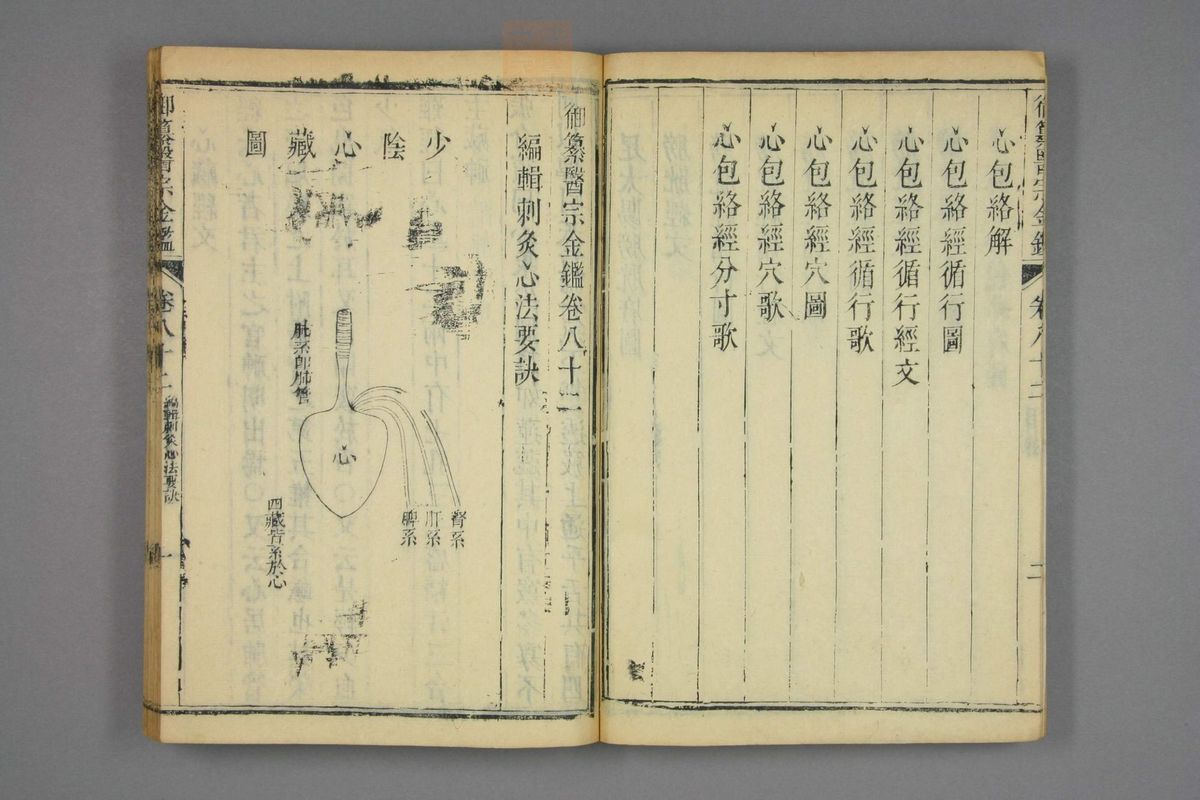 心包絡解
心包絡經循行圖
心包絡經循行經文
心包絡經循行歌
心包絡經穴圖
心包絡經穴歌
心包絡經分寸歌
卷八十二
二
御纂醫宗金鑑卷八十二
編輯刺灸心法要訣
少陰心藏圖
肺系即肺管
心
腎系
肝系
脾系
四藏皆系於心
御纂醫宗金鑑
卷八十二
編輯刺灸心法要訣
一